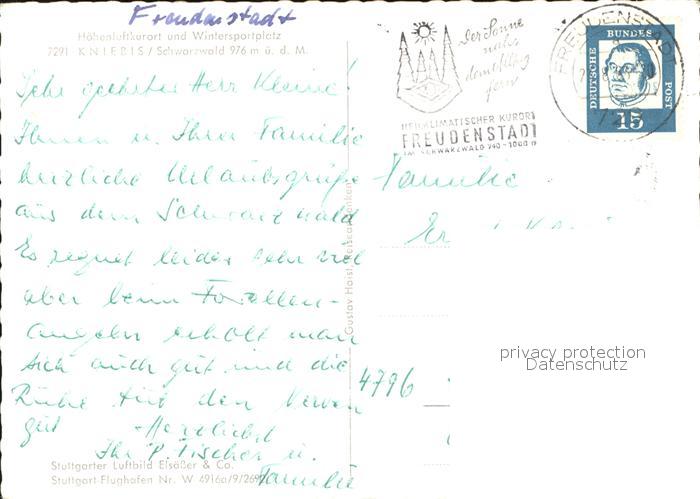 Freudenstadt
Höhenluftkurort und Wintersportplatz
7291 KNIEBIS / Schwarzwald 976 m ü. d. M.
Sehr geehrter Herr Kleine!
Ihnen u. Ihrer Familie
herzliche Urlaubsgrüße
aus dem Schwarzwald
Es regnet leider sehr viel
aber beim Forellen-
angeln erholt man
sich auch gut und die
Ruhe tut den Nerven
gut Herzlichst
Ihr P. Fischer u.
Familie
Stuttgarter Luftbild Elsäßer & Co.
Stuttgart-Flughafen Nr. W 4916a/9/269
Gustav Haist,
Der Sonne
nah
dem Alltag
fern
HEILKLIMATISCHER KURORT
FREUDENSTADT
IM SCHWARZWALD 740-1000 m
FREUDENSTADT
DEUTSCHE BUNDESPOST
15
Familie
4796
privacy protection
Datenschutz